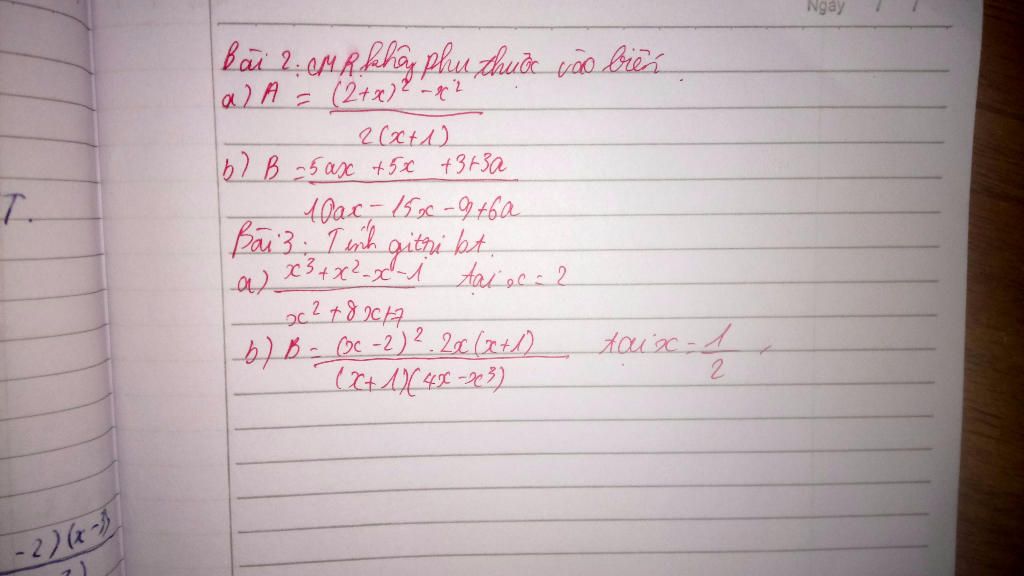 Ngày / /
Bài 2: CMR không phụ thuộc vào biến
a) A = (2+x)² - x²
2(x+1)
b) B = 5ax + 5x + 3+3a
10ax - 15x - 9+6a
Bài 3: Tính giá trị bt
a) x³ + x² - x - 1 tại x = 2
x² + 8x+7
b) B = (x - 2)² . 2x(x+1) tại x = 1
2
(x+1)(4x - x³)
T.
-2)(x-3)